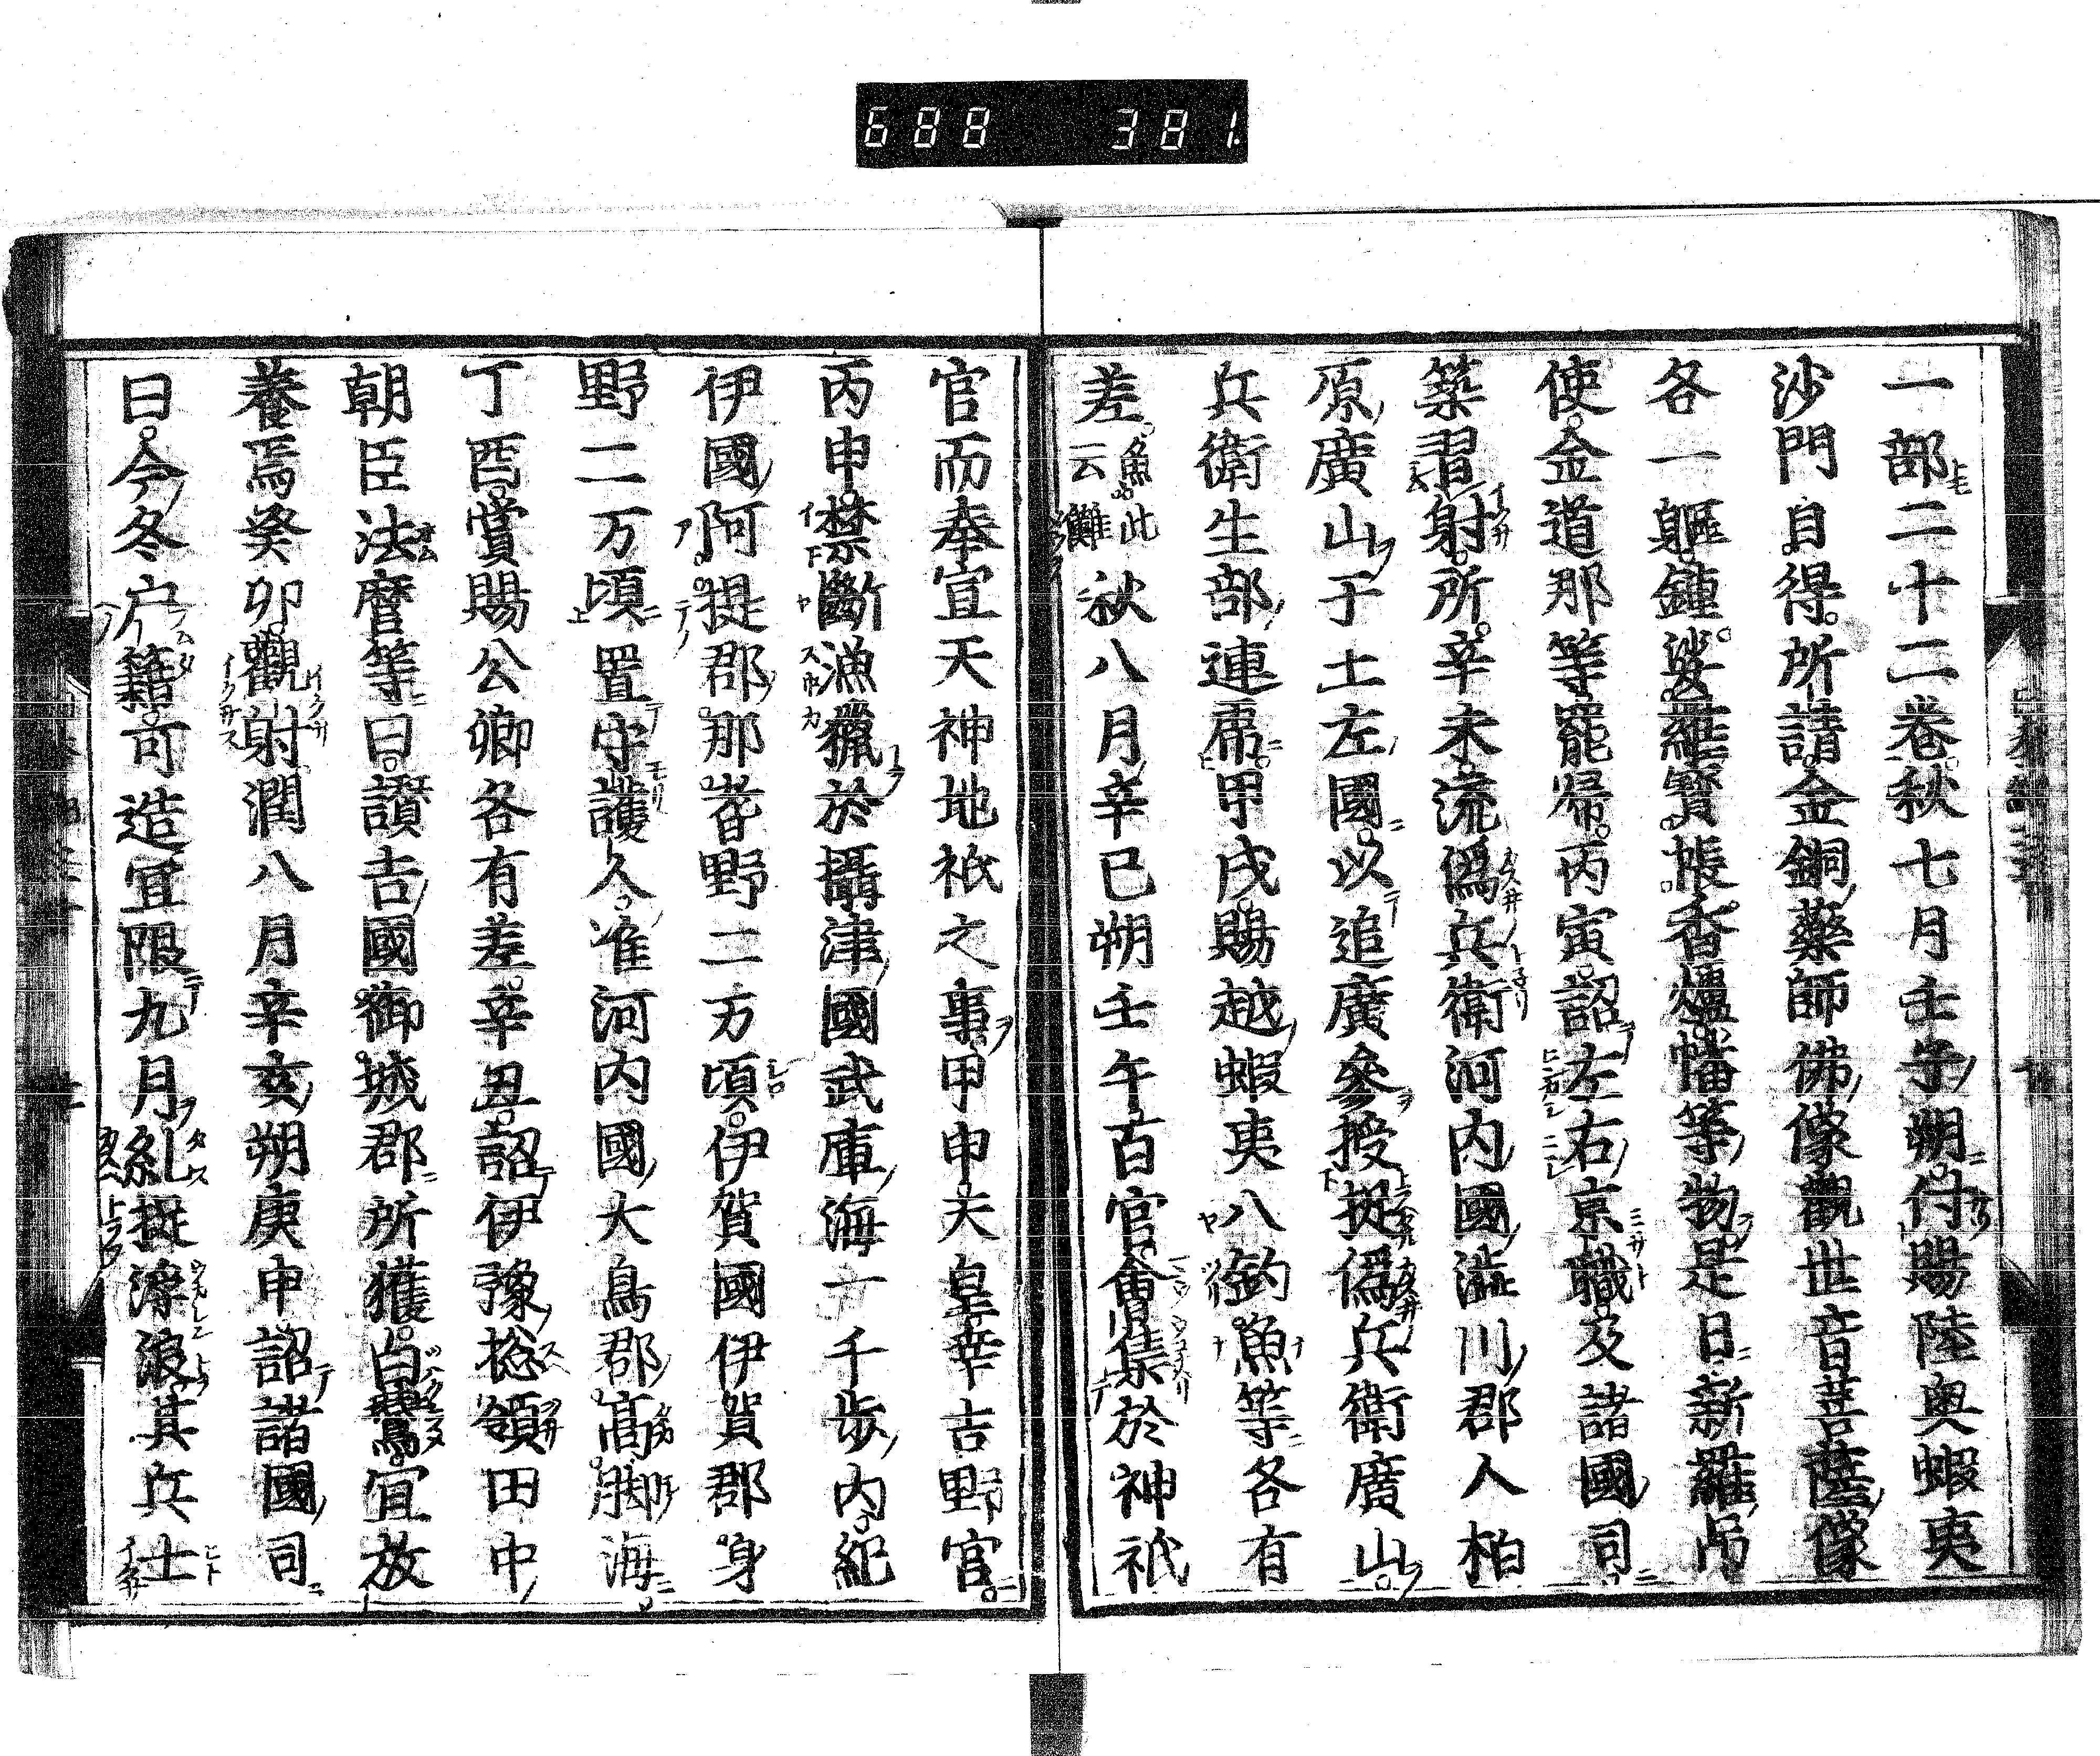 688 381
一部二十二巻秋七月壬子朔付賜陸奥蝦夷
沙門自得所請金銅藥師佛像觀世音菩薩像
各一軀鍾娑羅寳帳香爐幡等物是日新羅弔
使金道那等罷帰丙寅詔左右京職及諸國司
築習射所辛未流偽兵衛河内國澁川郡人柏
原廣山于土左國以追廣參授捉偽兵衛廣山
兵衛生部連虎甲戌賜越蝦夷八釣魚等各有
差魚此云儺秋八月辛巳朔壬午百官會集於神祇
官而奉宣天神地祇之事甲申天皇幸吉野宮
丙申禁斷漁獵於攝津國武庫海一千歩内紀
伊國阿提郡那耆野二万頃伊賀國伊賀郡身
野二万頃置守護人准河内國大鳥郡髙脚海
丁酉賞賜公卿各有差辛丑詔伊豫捴領田中
朝臣法麿等曰讃吉國御城郡所獲白鷰宜放
養焉癸卯觀射潤八月辛亥朔庚申詔諸國司
曰今冬户籍可造宜限九月糺捉浮浪其兵士